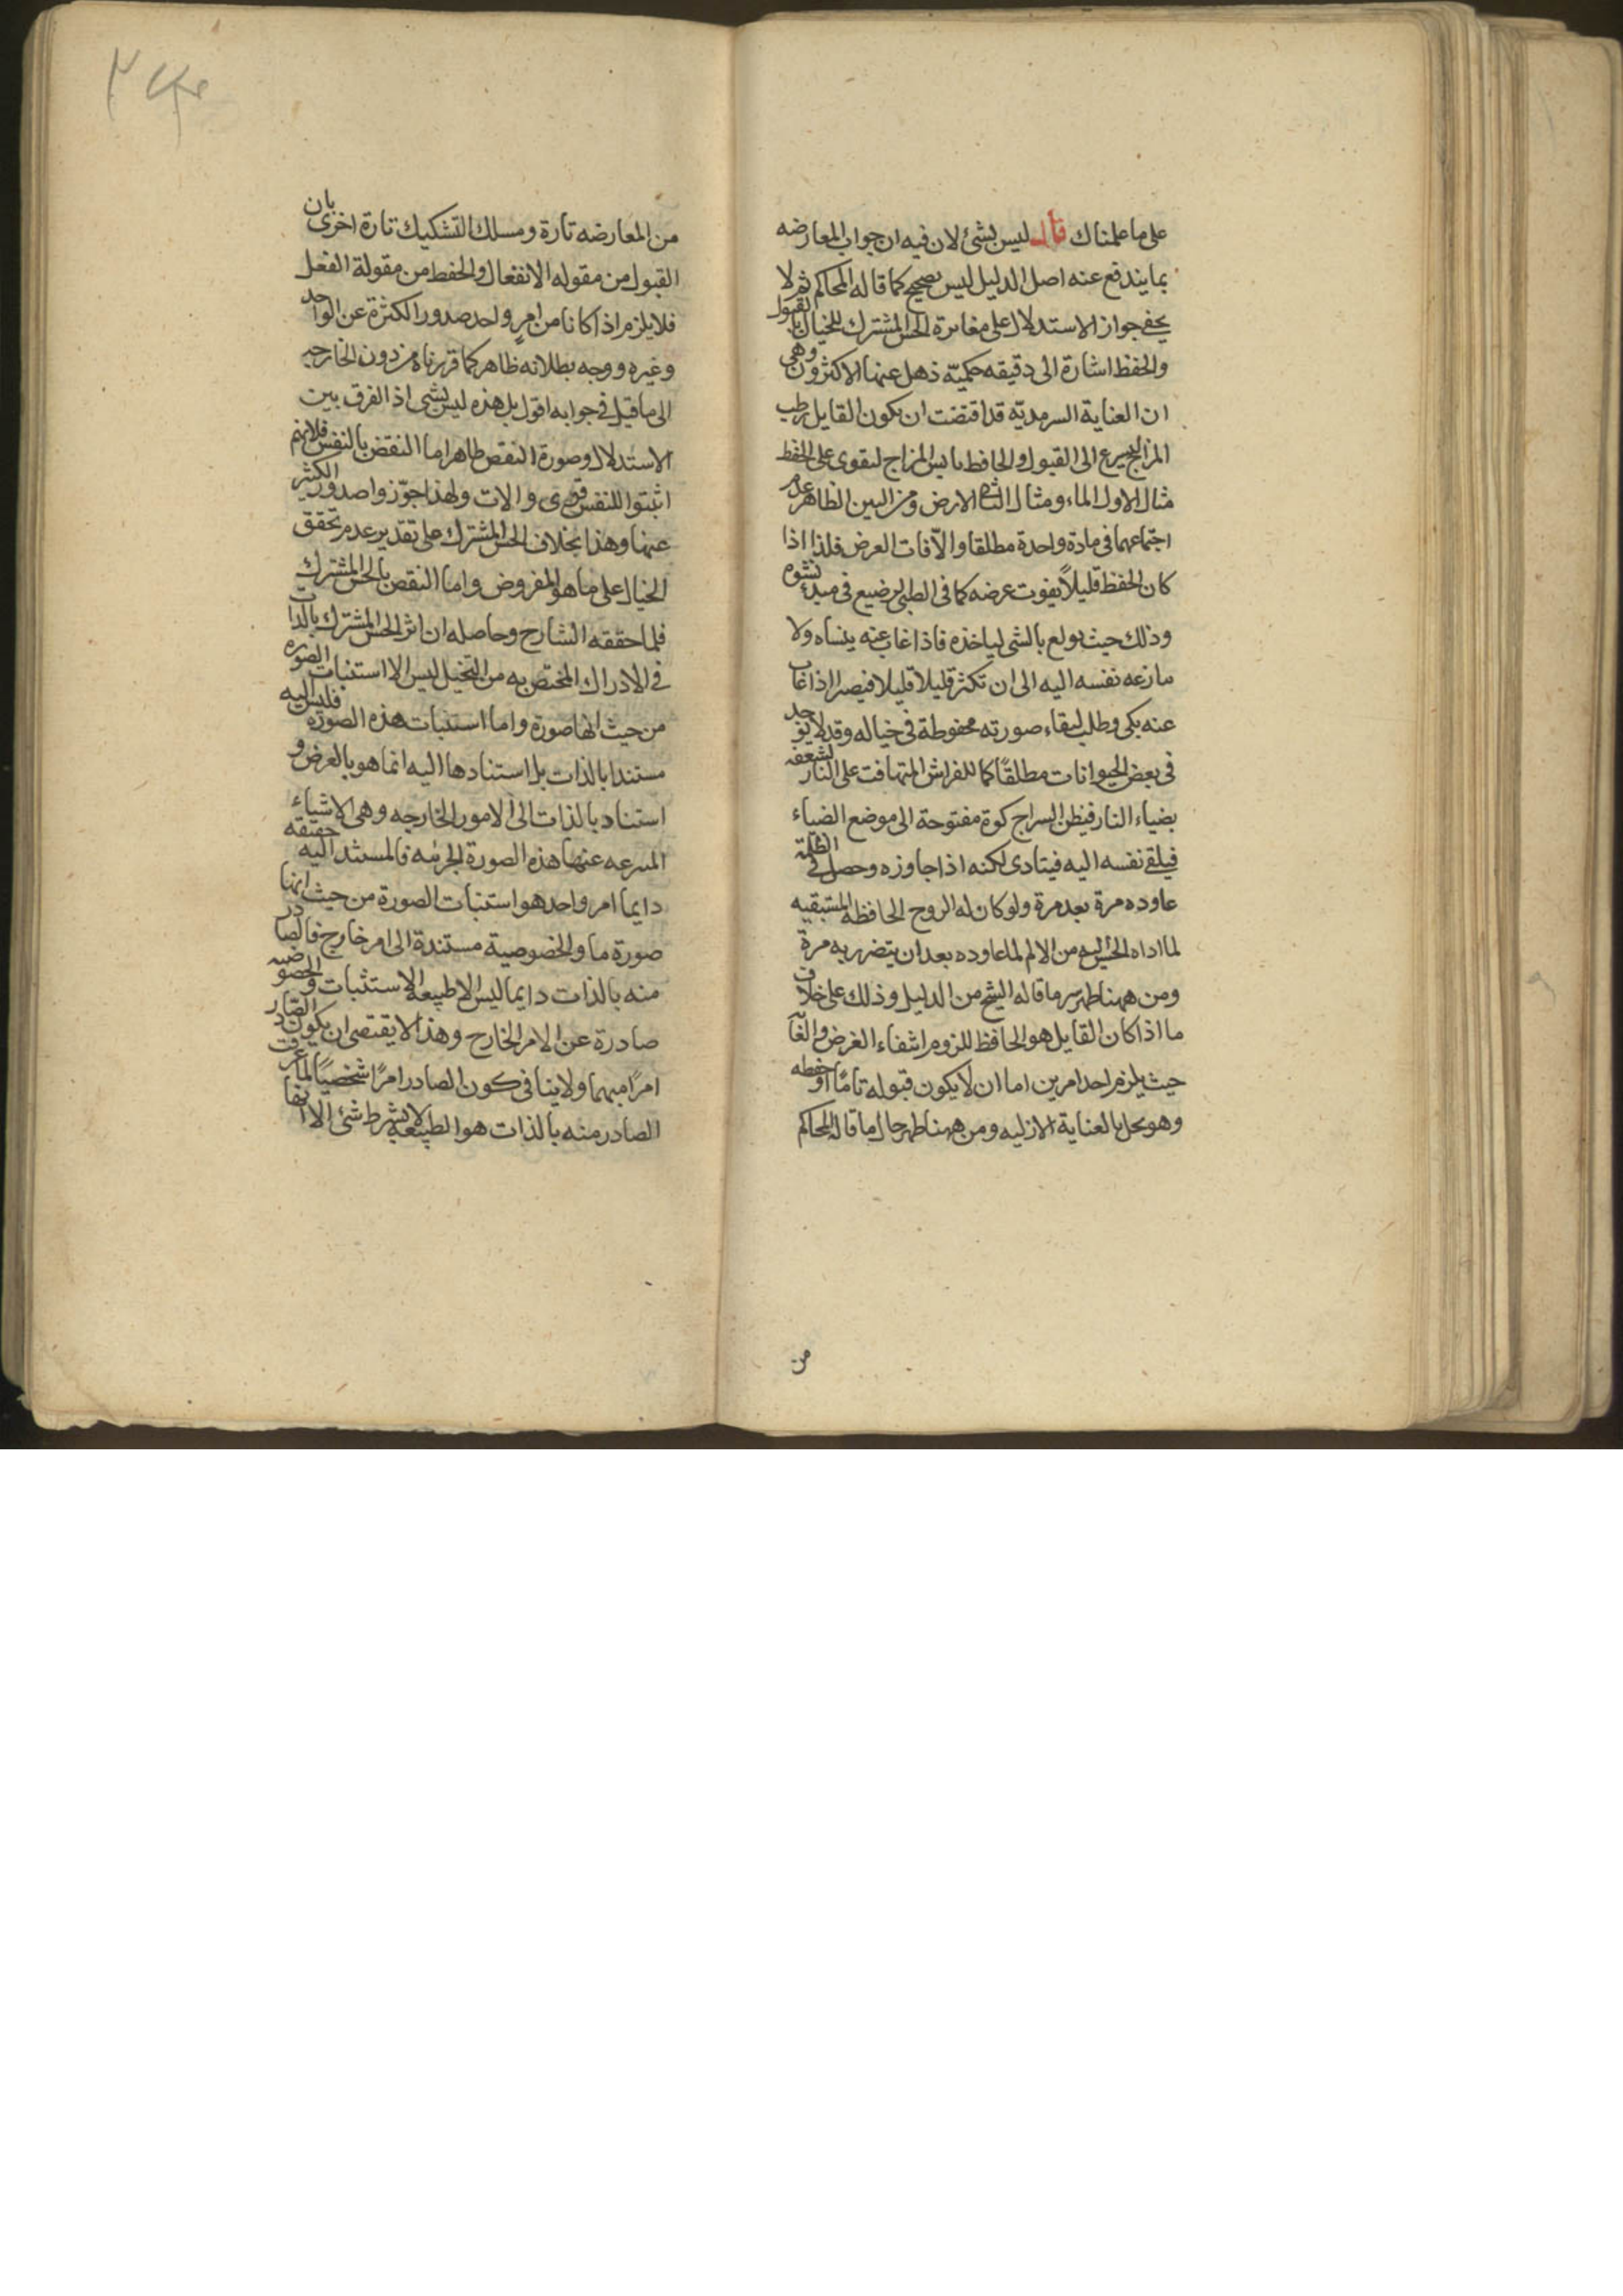 على ما علمناك قال ليس بشئ لان فيه ان جواب المعارضه
بما يندفع عنه اصل الدليل ليس بصحيح كما قاله المحاكم ثم لا
يخفى جواز الاستدلال على مغايرة الحس المشترك للخيال بالقبول
والحفظ اشارة الى دقيقه حكميّة ذهل عنها الاكثرون وهى
ان العناية السرمديّة قد اقتضت ان يكون القابل رطب
المزاج ليسرع الى القبول والحافظ يابس المزاج ليقوى على الحفظ
مثال الاول الماء ومثال الثانى الارض ومن البين الظاهر عدم
اجتماعهما فى مادة واحدة مطلقا والا فات الغرض فلذا اذا
كان الحفظ قليلاً يفوت غرضه كما فى الرضيع فى مبدء نشوه
وذلك حيث يولع بالشى لياخذه فاذا غاب عنه ينساه ولا
ينازعه نفسه اليه الى ان تكثر قليلا قليلا فيصير اذا غاب
عنه بكى وطلب لبقاء صورته محفوظة فى خياله وقد لا يوجد
فى بعض الحيوانات مطلقًا كما للفراش المتهافت على النار لشعفه
بضياء النار فيظن السراج كوة مفتوحة الى موضع الضياء
فيلقى نفسه اليه فيتاذى لكنه اذا جاوزه وحصل فى الظلمة
عاوده مرة بعد مرة ولو كان له الروح الحافظه المستبقيه
لما اداه الحس اليه من الالم لما عاوده بعد ان يتضرر به مرة
ومن ههنا ظهر سر ما قاله الشيخ من الدليل وذلك على خلاف
ما اذا كان القابل هو الحافظ للزوم انتفاء الغرض والغاية
حيث يلزم احد امرين اما ان لا يكون قبوله تامًا او حفظه
وهو يخل بالعناية الازليه ومن ههنا ظهر حال ما قاله المحاكم
من
من المعارضه تارة ومسلك التشكيك تارة اخرى بان
القبول من مقوله الانفعال والحفظ من مقولة الفعل
فلا يلزم اذا كانا من امر واحد صدور الكثرة عن الواحد
وغيره ووجه بطلانه ظاهر كما قررناه من دون الخارجه
الى ما قيل فى جوابه اقول بل هذه ليس بشى اذ الفرق بين
الاستدلال وصورة النقض ظاهر اما النقض بالنفس فلانهم
اثبتوا للنفس قوى والات ولهذا جوّزوا صدور الكثير
عنها وهذا بخلاف الحس المشترك على تقدير عدم تحقق
الخيال على ما هو المفروض واما النقض بالحس المشترك
فلما حققه الشارح وحاصله ان اثر الحس المشترك بالذات
فى الادراك المختص به من التخيل ليس الا استثبات الصورة
من حيث انها صورة واما استثبات هذه الصورة فليس اليه
مستندا بالذات بل استنادها اليه انما هو بالعرض و
استناد بالذات الى الامور الخارجه وهى الاشياء
المنتزعه عنها هذه الصورة الجزئيه فالمستند اليه حقيقه
دايما امر واحد هو استثبات الصورة من حيث انها
صورة ما والخصوصية مستندة الى امر خارج فالصادر
منه بالذات دايما ليس الا طبيعة الاستثبات والخصوصيه
صادرة عن الامر الخارج وهذا لا يقتضى ان يكون الصادر
امرًا مبهما ولا ينافى كون الصادر امرًا شخصيًا لما عرفت
الصادر منه بالذات هو الطبيعه لا بشرط شئ الا